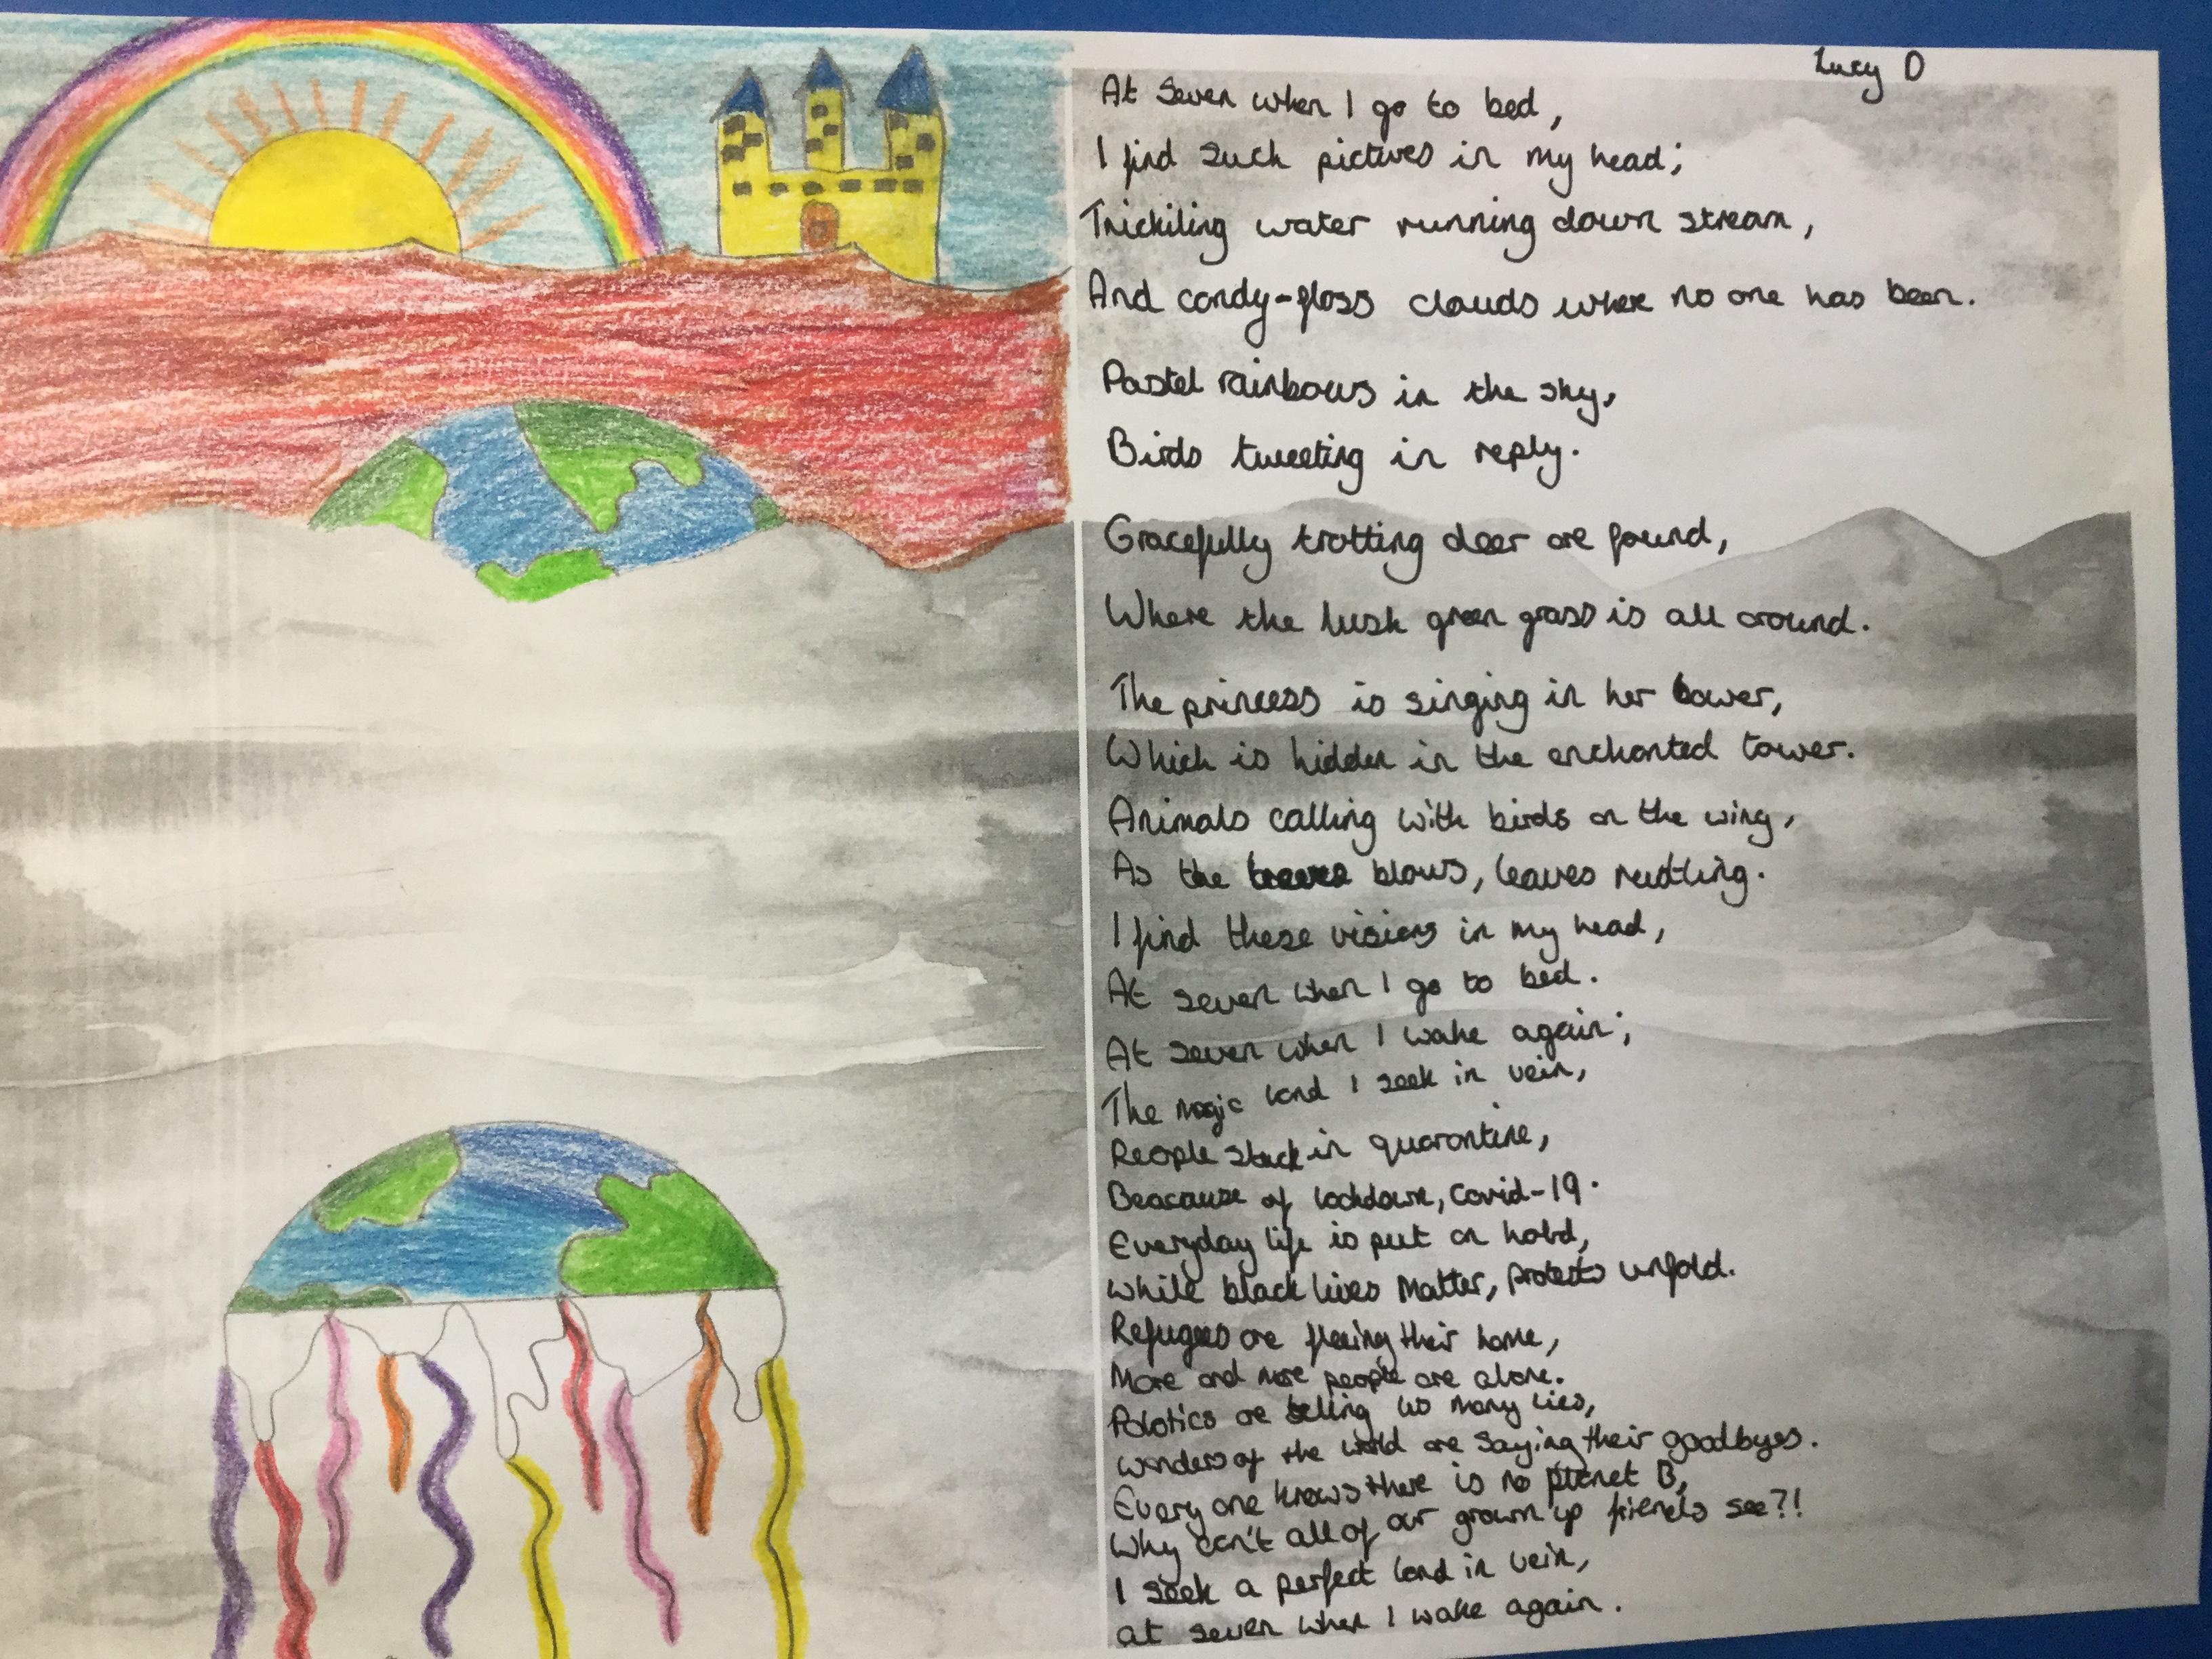 Lucy D
At Seven when I go to bed,
I find such pictures in my head;
Trickiling water running down stream,
And candy-floss clouds where no one has been.
Pastel rainbows in the sky,
Birds tweeting in reply.
Gracefully trotting deer are found,
Where the lush green grass is all around.
The princess is singing in her bower,
Which is hidden in the enchanted tower.
Animals calling with birds on the wing,
As the blows, leaves rustling.
I find these visions in my head,
At seven when I go to bed.
At seven when I wake again;
The magic land I seek in vein,
People stuck in quarantine,
Beacause of lockdown, Covid-19.
Everyday life is put on hold,
While black lives Matter, protests unfold.
Refugees are fleeing their home,
More and more people are alone.
Polotics are telling us many lies,
wonders of the world are saying their goodbyes.
Every one knows there is no planet B,
Why can't all of our grown up friends see?!
I seek a perfect land in vein,
at seven when I wake again.